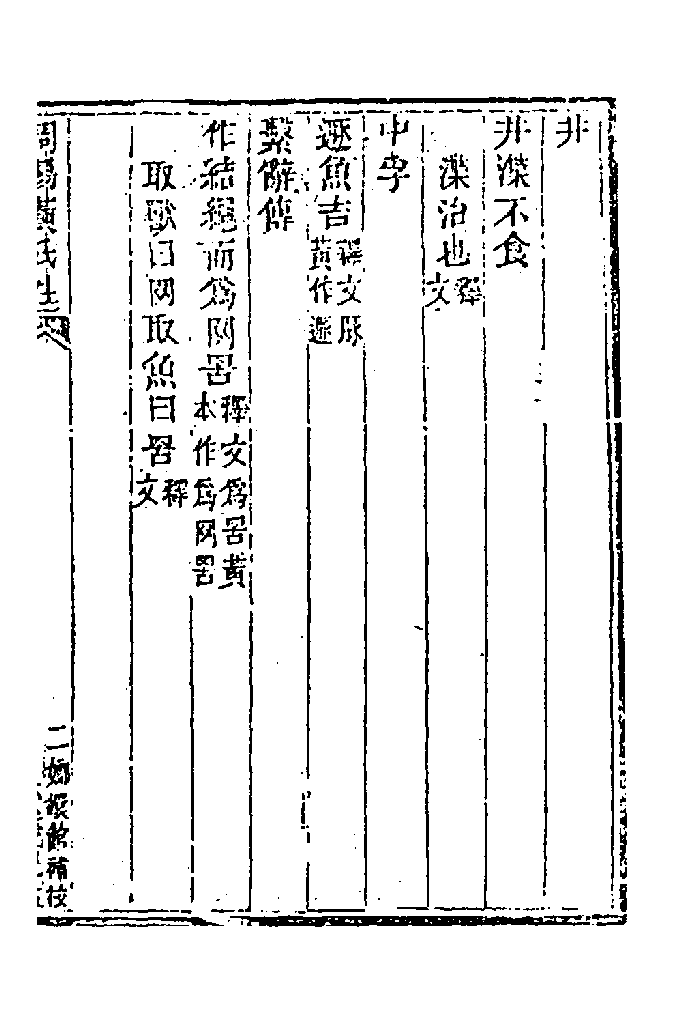 井
井渫不食
渫治也釋文
中孚
遯魚吉釋文豚黃作遯
繫辭傳
作結繩而為网罟釋文為罟黃本作為网罟
取獸曰网取魚曰罟釋文
周易黃氏注 二 嫏嬛館補校